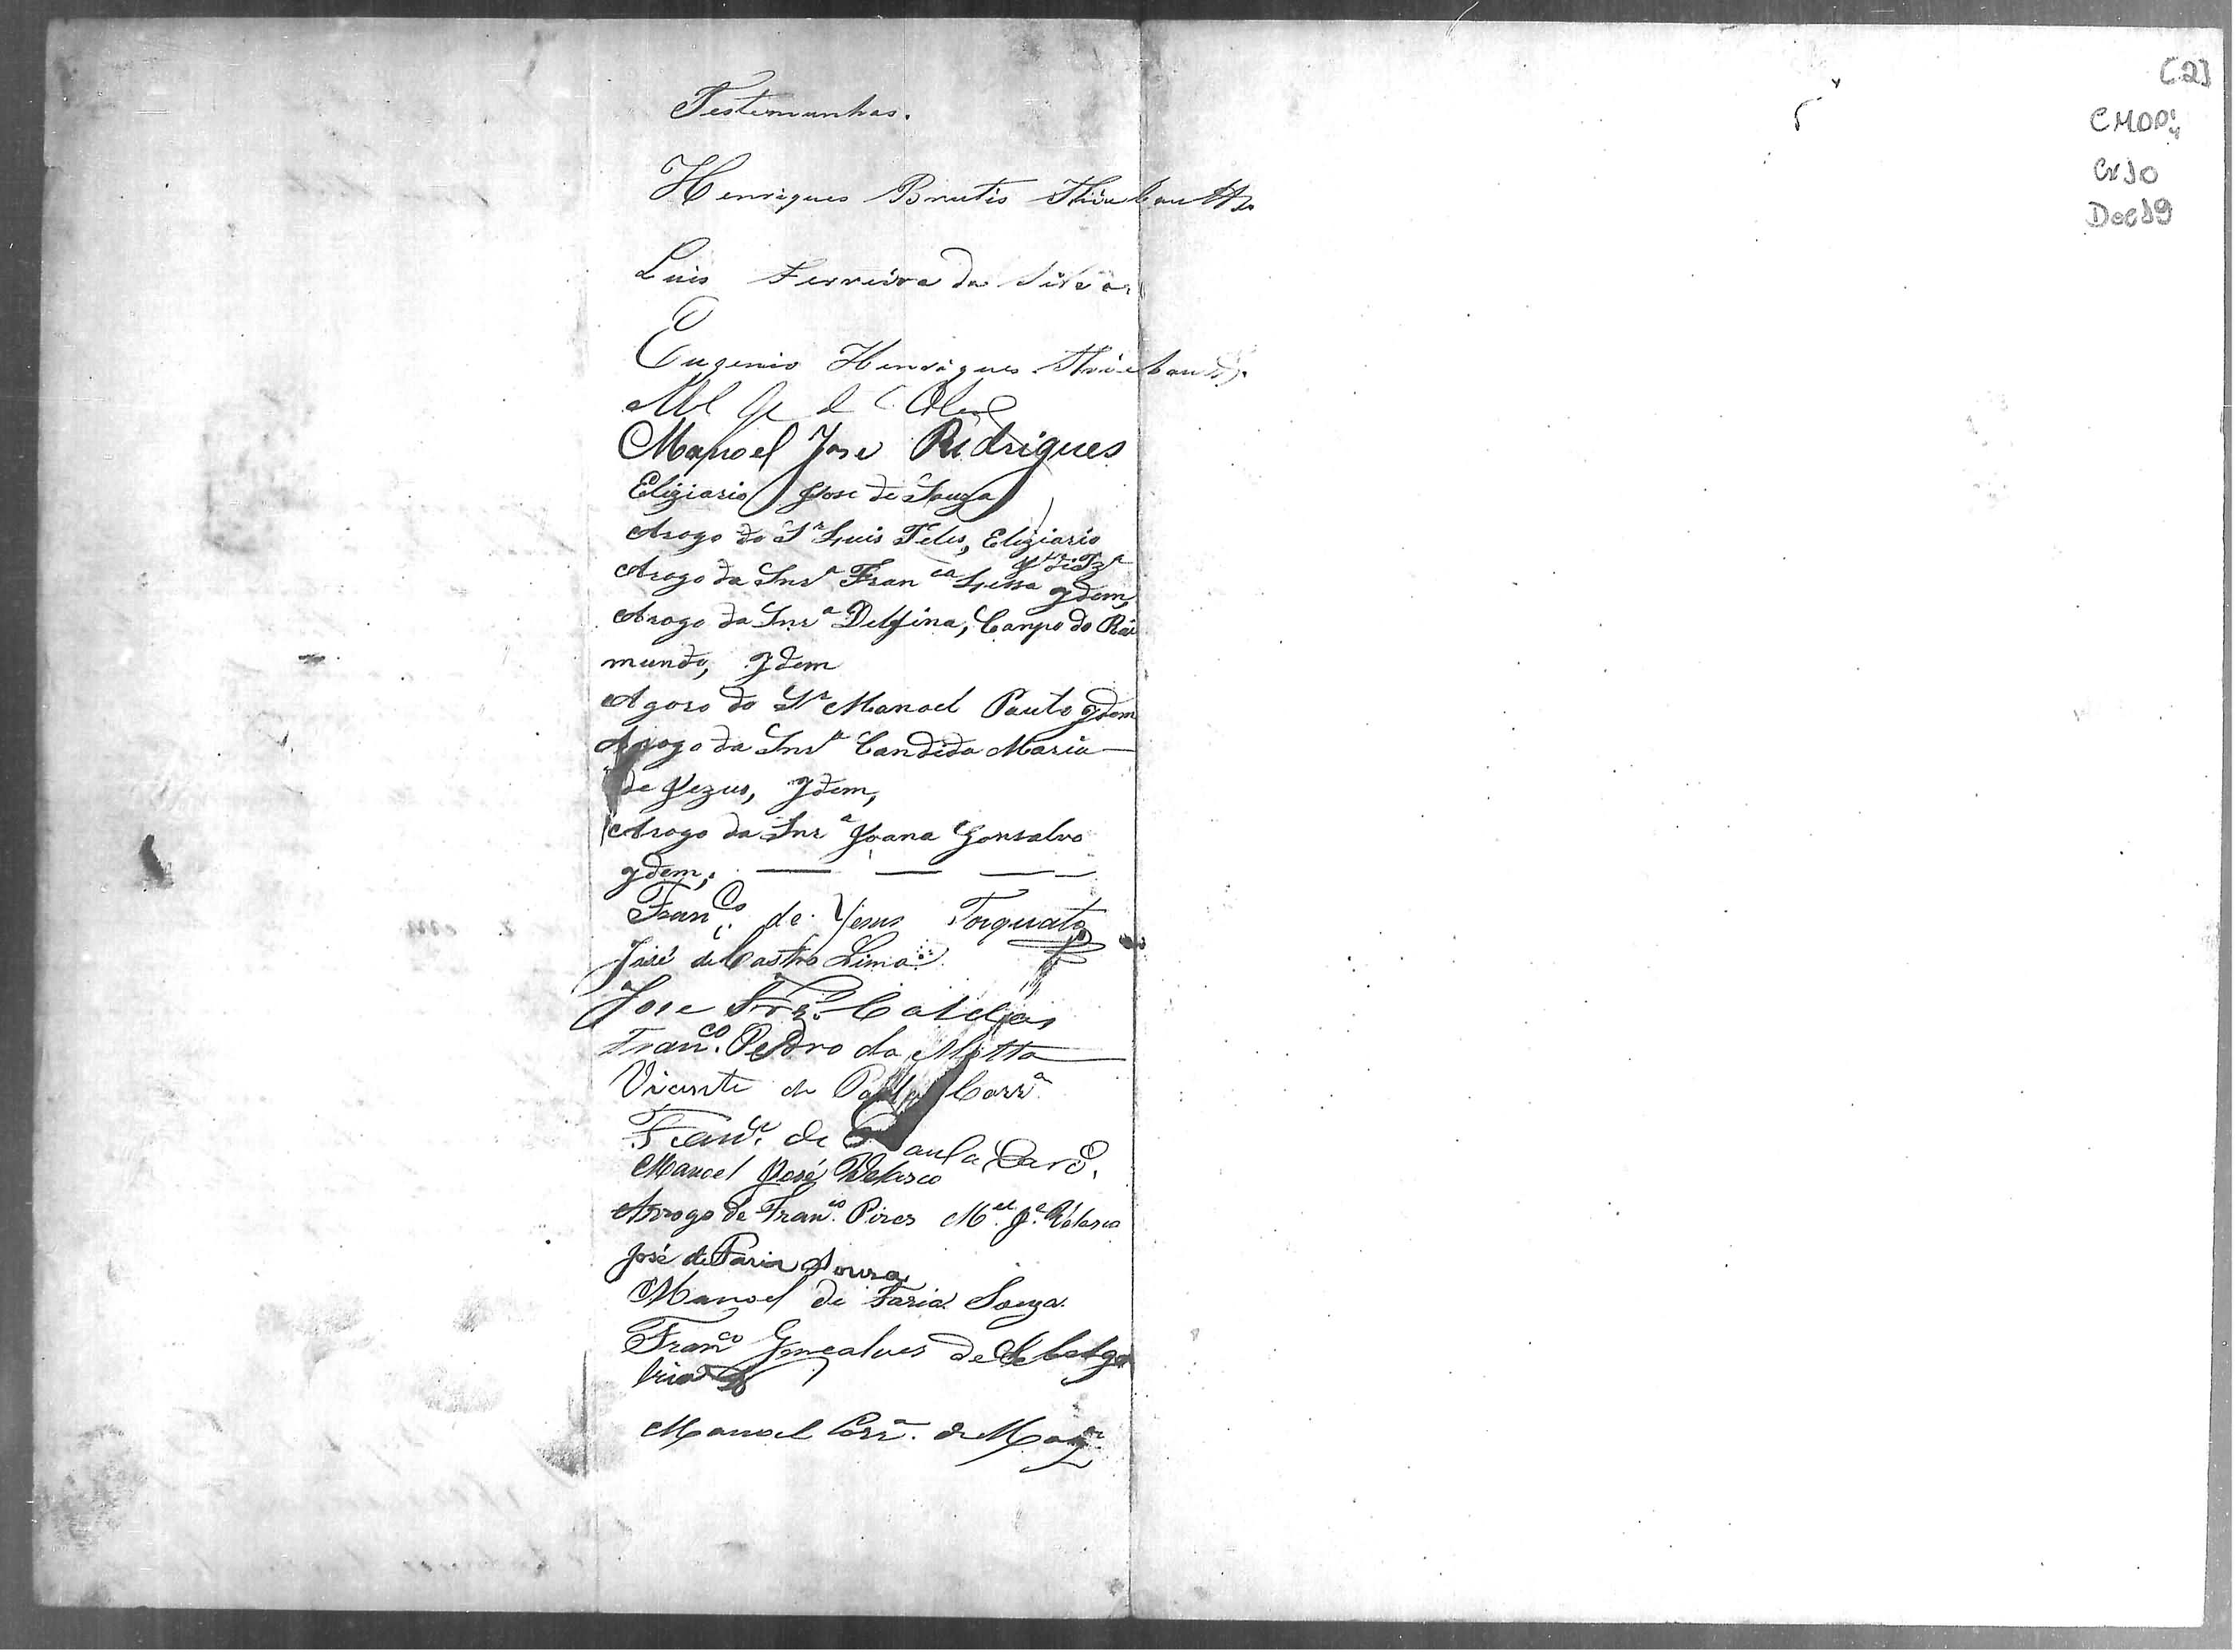 Testemunhas.
Henriques Brutis
Luis Ferreira da Silva
Eugenio Henriques
Manoel Jose Rodrigues
Eliziario Jose de Souza
Arogo do Sr Luis Teles, Eliziario
Je de Sza
Arogo da Snra Franca Lessa Jdem,
Arogo da Snra Delfina, Campo do Rai
mundo, Jdem
Agoro do Sr Manoel Pauto Jdem
Arogo da Snra Candida Maria
de Jezus, Jdem,
Arogo da Snra Joana Gonsalvo
Jdem,
Franco de Jesus Torquato
José de Castro Lima
Jose
Franco. Pedro da Motta
Vicente de Paula Corra
de Paula
Manoel José Velasco
Arrogo de Franco. Pires Mel. Je. Velasco
José de Faria Souza
Manoel de Faria Souza.
Franco Gonçalves de
Manoel Corra. de
[2]
CMOP:
Cx10
Doc19